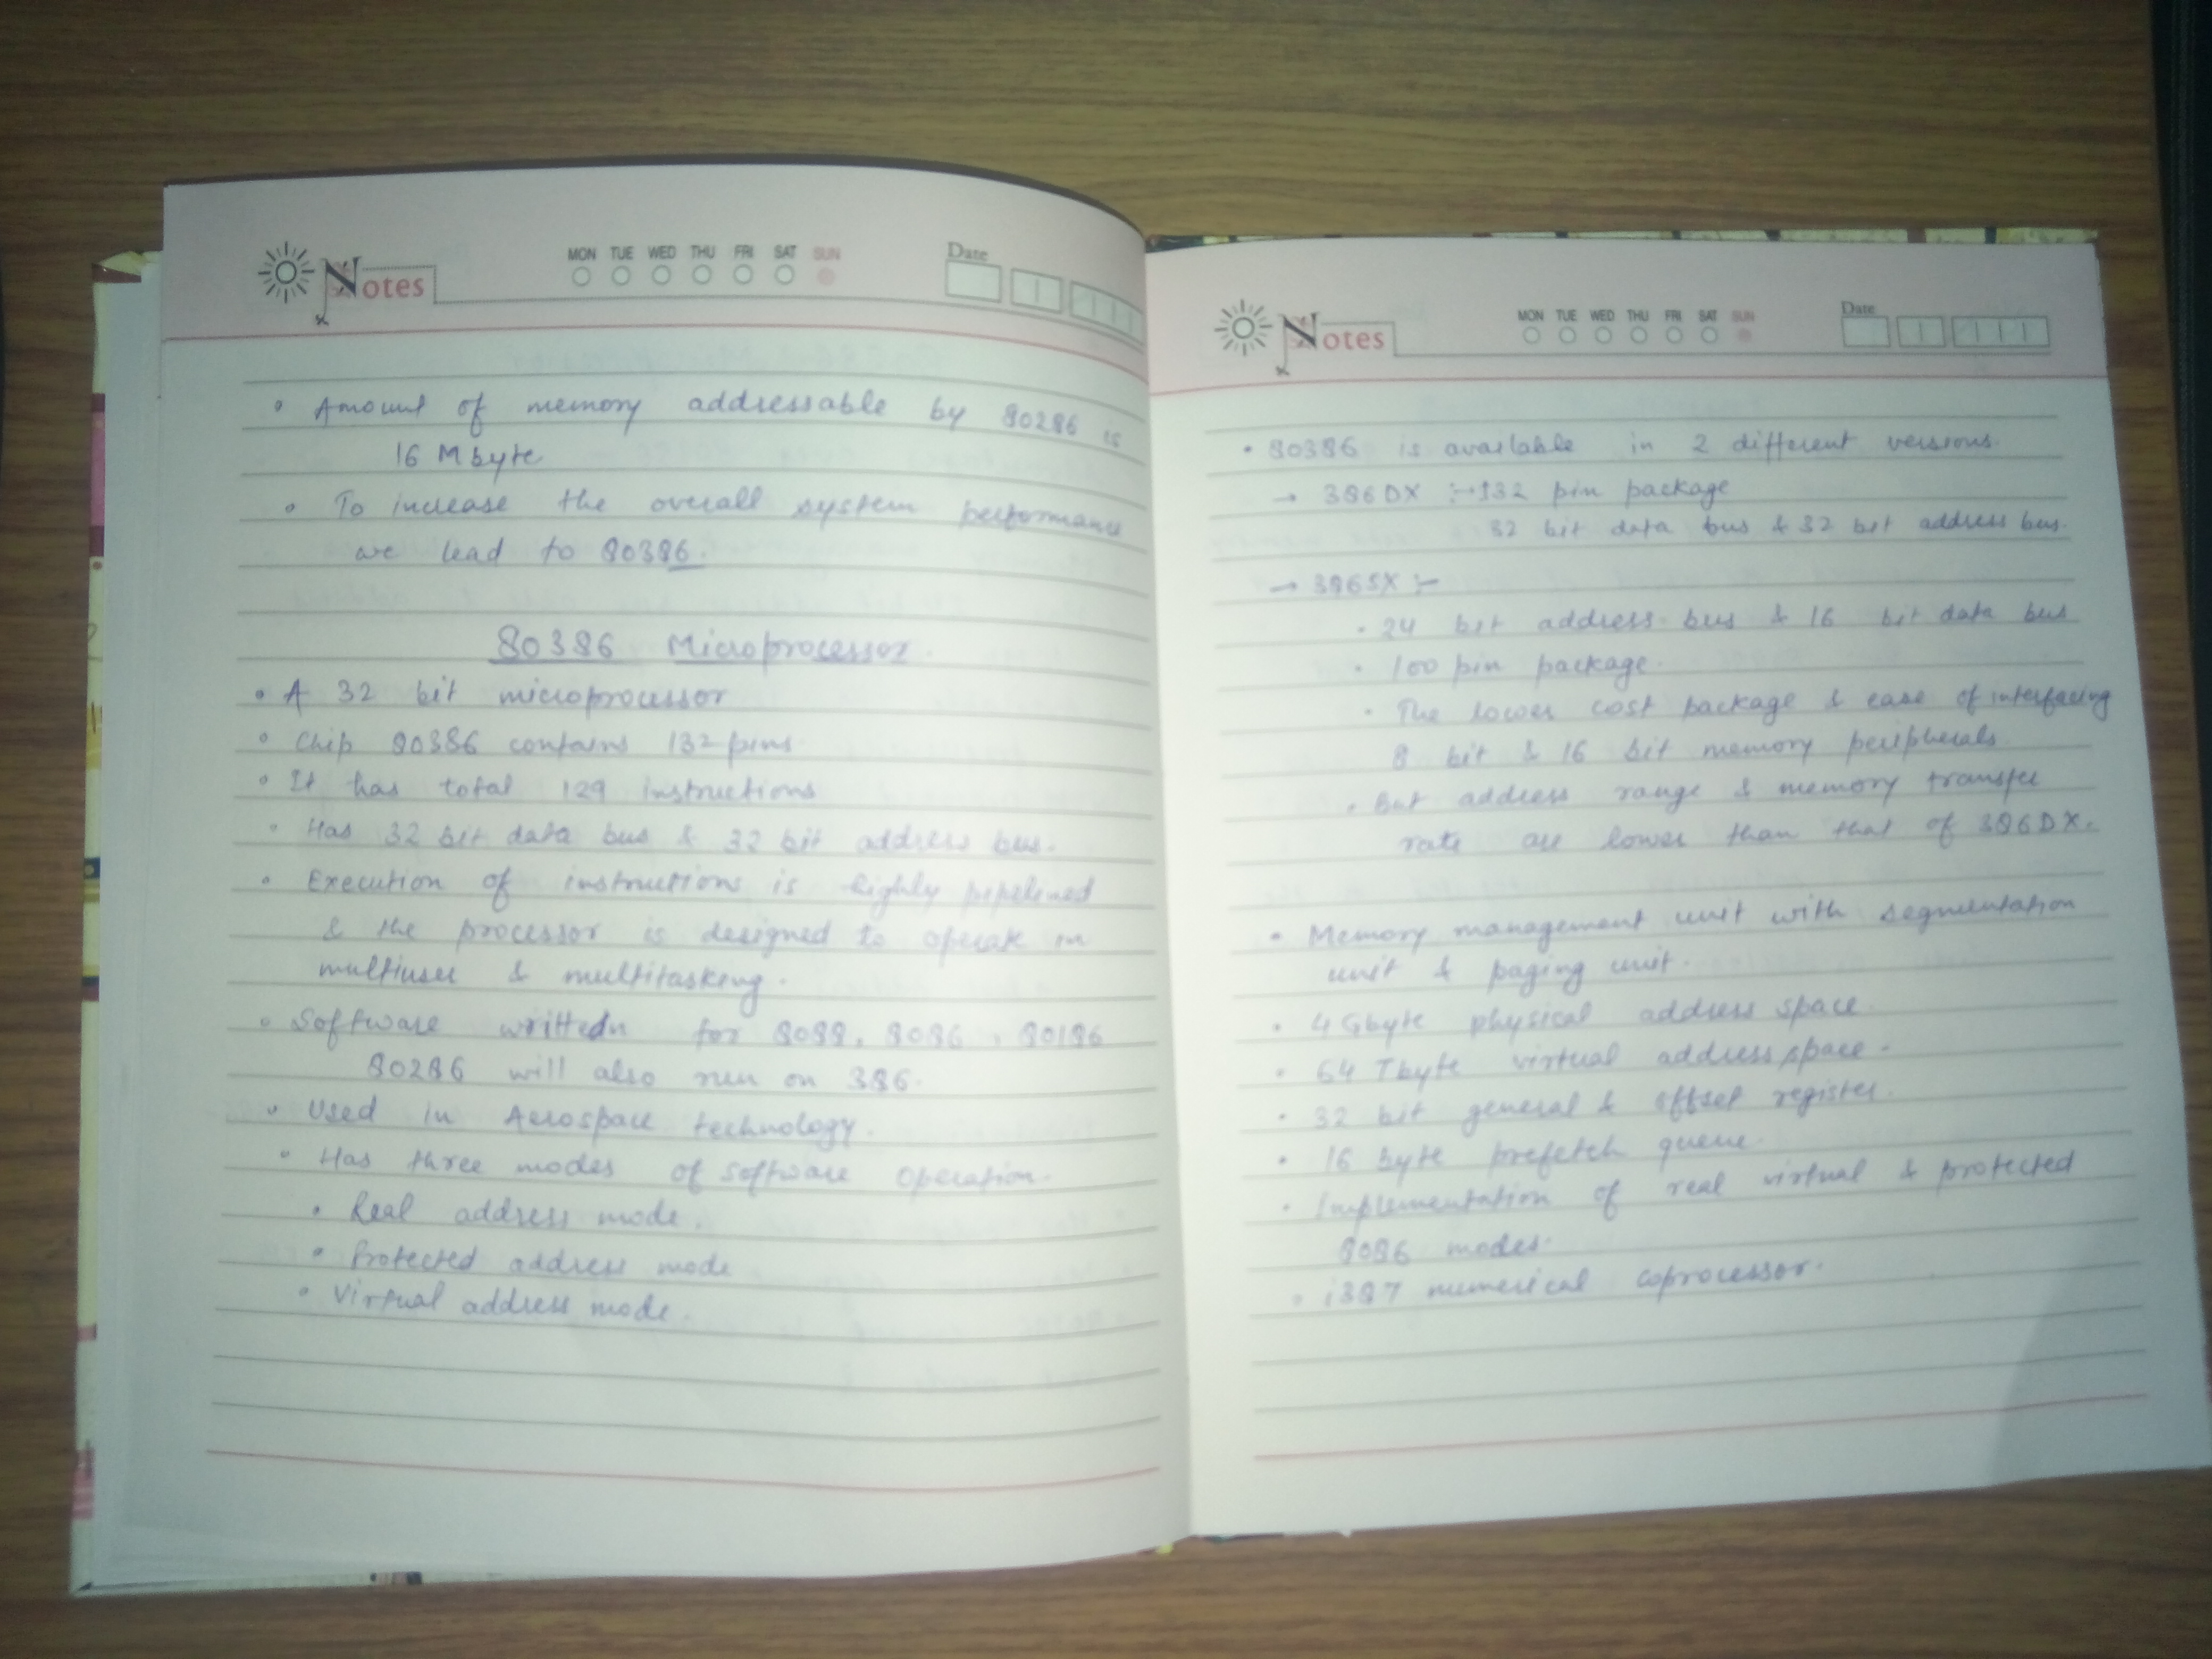 Notes
MON TUE WED THU FRI SAT SUN
Date
• Amount of memory addressable by 80286 is
16 Mbyte
• To increase the overall system performance
we lead to 80386.
80386 Microprocessor.
• A 32 bit microprocessor
• Chip 80386 contains 132 pins.
• It has total 129 instructions
• Has 32 bit data bus & 32 bit address bus.
• Execution of instructions is highly pipelined
& the processor is designed to operate in
multiuser & multitasking.
• Software written for 8088, 8086, 80186
80286 will also run on 386.
• Used in Aerospace technology.
• Has three modes of software operation.
• Real address mode.
• Protected address mode
• Virtual address mode.
Notes
MON TUE WED THU FRI SAT SUN
Date
• 80386 is available in 2 different versions.
→ 386DX :- 132 pin package
32 bit data bus & 32 bit address bus.
→ 386SX :-
• 24 bit address bus & 16 bit data bus
• 100 pin package.
• The lower cost package & ease of interfacing
8 bit & 16 bit memory peripherals.
• But address range & memory transfer
rate are lower than that of 386DX.
• Memory management unit with segmentation
unit & paging unit.
• 4 Gbyte physical address space.
• 64 Tbyte virtual address space.
• 32 bit general & offset register.
• 16 Byte prefetch queue.
• Implementation of real virtual & protected
8086 modes.
• i387 numerical coprocessor.